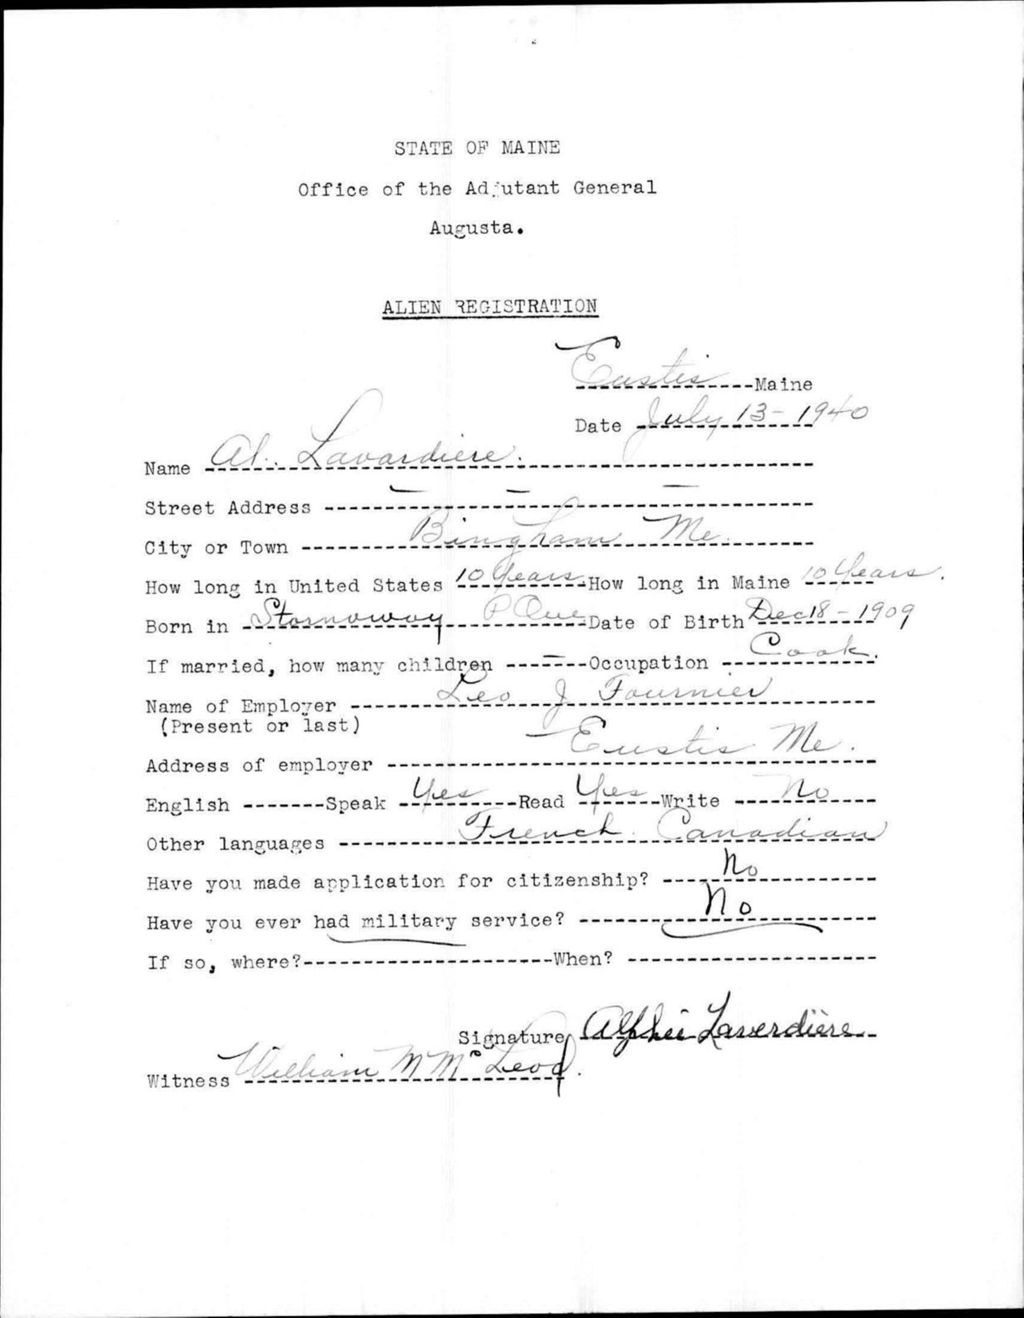 STATE OF MAINE
Office of the Adjutant General
Augusta.
ALIEN REGISTRATION
Eustis Maine
Date July 13-1940
Name Al. Lavardiere.
Street Address — — —
City or Town Bingham Me.
How long in United States 10 Years How long in Maine 10 Years.
Born in Stornoway P Que Date of Birth Dec 18-1909
If married, how many children — Occupation Cook.
Name of Employer Leo J Fournier
(Present or last)
Address of employer Eustis Me.
English Speak Yes Read Yes Write No
Other languages French Canadian
Have you made application for citizenship? No
Have you ever had military service? No
If so, where? When?
Signature Alfhei Laverdière
Witness William M McLeod.